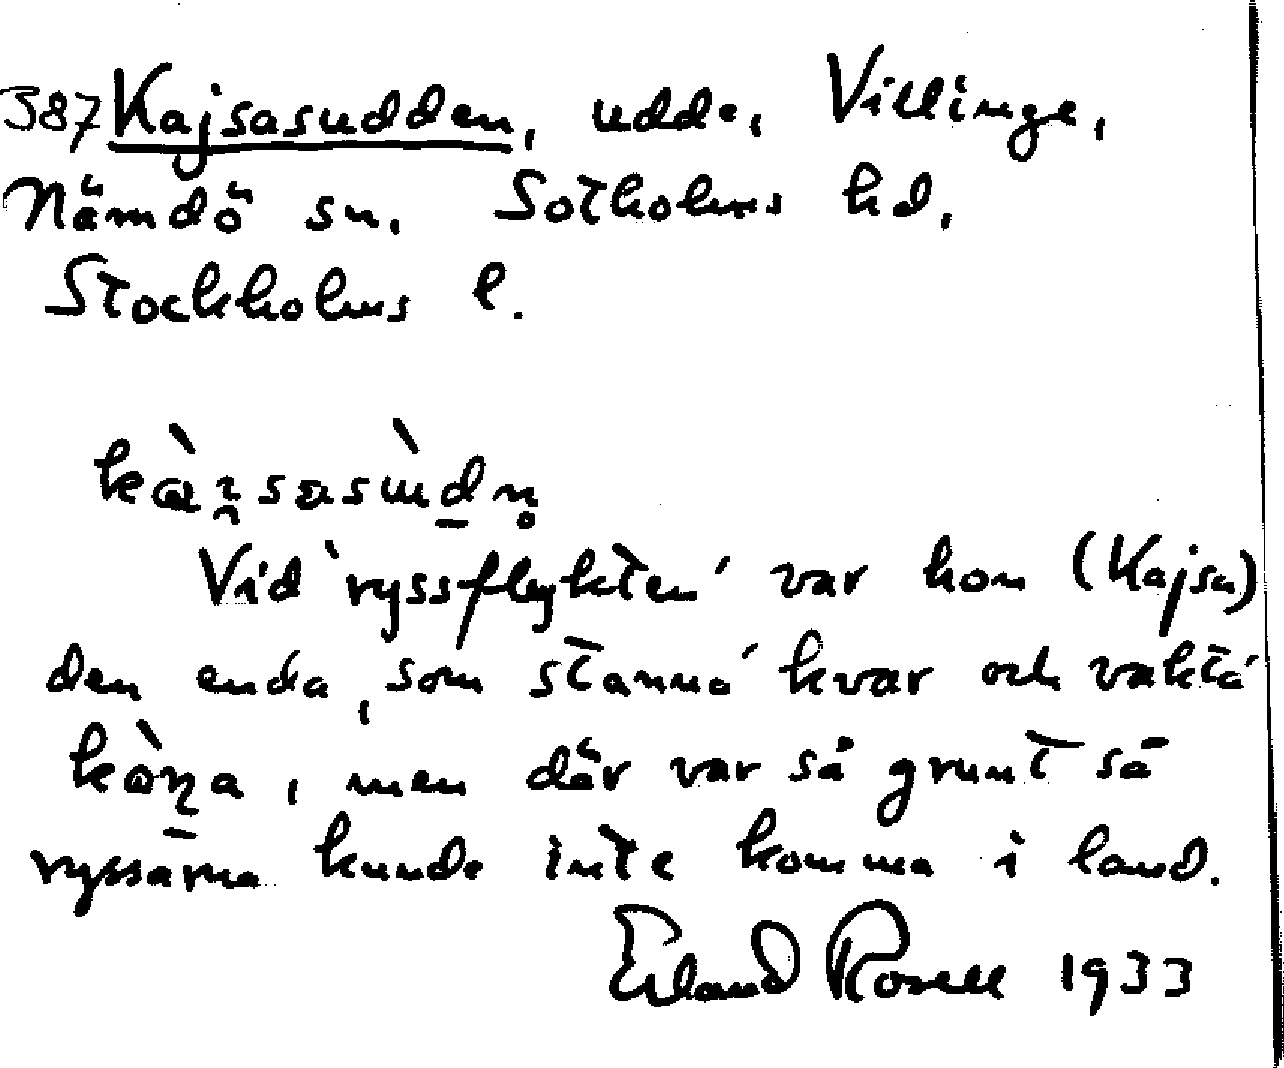 387 Kajsasudden, udde, Villinge,
Nämdö sn. Sotholms hd,
Stockholms l.
Vid 'ryssflykten' var hon (Kajsa)
den enda, som stanna' kvar och vakta'
men där var så grunt så
ryssarna kunde inte komma i land.
Erland Rosell 1933